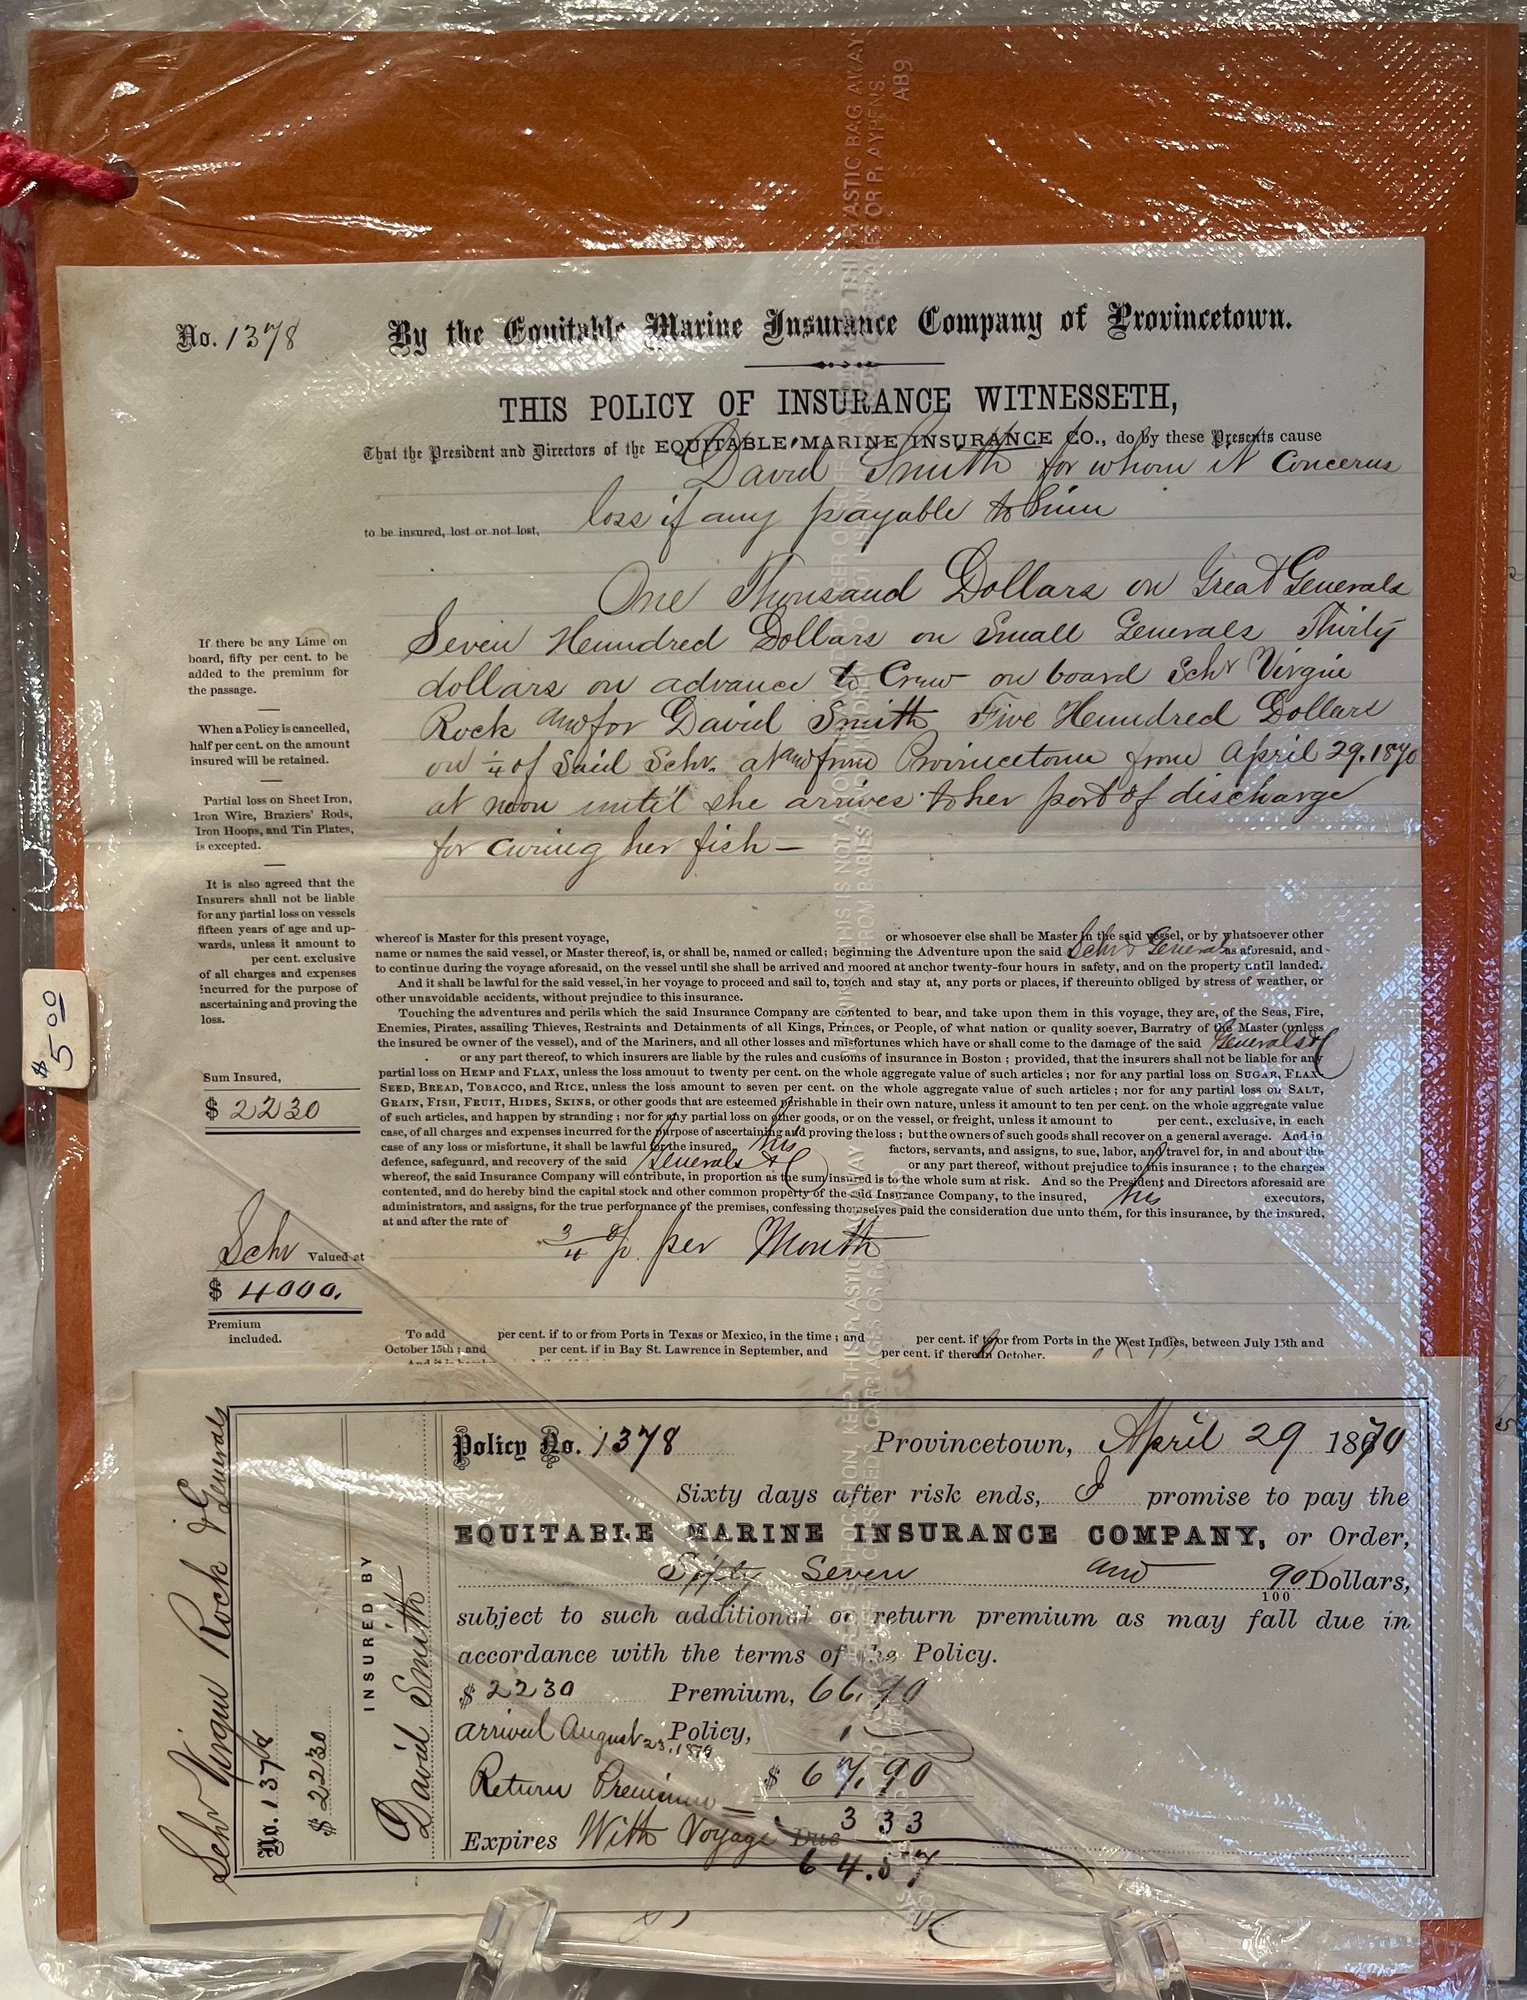 No. 1378
By the Equitable Marine Insurance Company of Provincetown.
THIS POLICY OF INSURANCE WITNESSETH,
That the President and Directors of the EQUITABLE MARINE INSURANCE CO., do by these Presents cause
David Smith for whom it concerns
to be insured, lost or not lost, loss if any payable to him
One Thousand Dollars on Great Generals
Seven Hundred Dollars on Small Generals Thirty
dollars on advance to Crew on board Schr Virgin
Rock and for David Smith Five Hundred Dollars
on 1/4 of Said Schr. at and from Provincetown from April 29. 1870
at noon until she arrives to her port of discharge
for curing her fish —
If there be any Lime on
board, fifty per cent. to be
added to the premium for
the passage.
When a Policy is cancelled,
half per cent. on the amount
insured will be retained.
Partial loss on Sheet Iron,
Iron Wire, Braziers' Rods,
Iron Hoops, and Tin Plates,
is excepted.
It is also agreed that the
Insurers shall not be liable
for any partial loss on vessels
fifteen years of age and up-
wards, unless it amount to
per cent. exclusive
of all charges and expenses
incurred for the purpose of
ascertaining and proving the
loss.
Sum Insured,
$ 2230
Schr Valued at
$ 4000.
Premium
included.
whereof is Master for this present voyage, or whosoever else shall be Master in the said vessel, or by whatsoever other
name or names the said vessel, or Master thereof, is, or shall be, named or called; beginning the Adventure upon the said Schr & Generals as aforesaid, and
to continue during the voyage aforesaid, on the vessel until she shall be arrived and moored at anchor twenty-four hours in safety, and on the property until landed.
And it shall be lawful for the said vessel, in her voyage to proceed and sail to, touch and stay at, any ports or places, if thereunto obliged by stress of weather, or
other unavoidable accidents, without prejudice to this insurance.
Touching the adventures and perils which the said Insurance Company are contented to bear, and take upon them in this voyage, they are, of the Seas, Fire,
Enemies, Pirates, assailing Thieves, Restraints and Detainments of all Kings, Princes, or People, of what nation or quality soever, Barratry of the Master (unless
the insured be owner of the vessel), and of the Mariners, and all other losses and misfortunes which have or shall come to the damage of the said Generals &C
or any part thereof, to which insurers are liable by the rules and customs of insurance in Boston; provided, that the insurers shall not be liable for any
partial loss on HEMP and FLAX, unless the loss amount to twenty per cent. on the whole aggregate value of such articles; nor for any partial loss on SUGAR, FLAX-
SEED, BREAD, TOBACCO, and RICE, unless the loss amount to seven per cent. on the whole aggregate value of such articles; nor for any partial loss on SALT,
GRAIN, FISH, FRUIT, HIDES, SKINS, or other goods that are esteemed perishable in their own nature, unless it amount to ten per cent. on the whole aggregate value
of such articles, and happen by stranding; nor for any partial loss on other goods, or on the vessel, or freight, unless it amount to per cent., exclusive, in each
case, of all charges and expenses incurred for the purpose of ascertaining and proving the loss; but the owners of such goods shall recover on a general average. And in
case of any loss or misfortune, it shall be lawful for the insured, his factors, servants, and assigns, to sue, labor, and travel for, in and about the
defence, safeguard, and recovery of the said Generals &C or any part thereof, without prejudice to this insurance; to the charges
whereof, the said Insurance Company will contribute, in proportion as the sum insured is to the whole sum at risk. And so the President and Directors aforesaid are
contented, and do hereby bind the capital stock and other common property of the said Insurance Company, to the insured, his executors,
administrators, and assigns, for the true performance of the premises, confessing themselves paid the consideration due unto them, for this insurance, by the insured,
at and after the rate of
3/4 % per Month
To add per cent. if to or from Ports in Texas or Mexico, in the time; and per cent. if to or from Ports in the West Indies, between July 15th and
October 15th; and per cent. if in Bay St. Lawrence in September, and per cent. if therein October.
$ 5 00
Schr Virgin Rock & Generals
No. 1378
$ 2230
INSURED BY
David Smith
Policy No. 1378 Provincetown, April 29 1870
Sixty days after risk ends, I promise to pay the
EQUITABLE MARINE INSURANCE COMPANY, or Order,
Fifty Seven and 90/100 Dollars,
subject to such additional or return premium as may fall due in
accordance with the terms of the Policy.
$ 2230 Premium, 66.90
arrived August 23, 1870 Policy, 1
Return Premium $ 67.90
3 33
Expires With Voyage Due
64.57